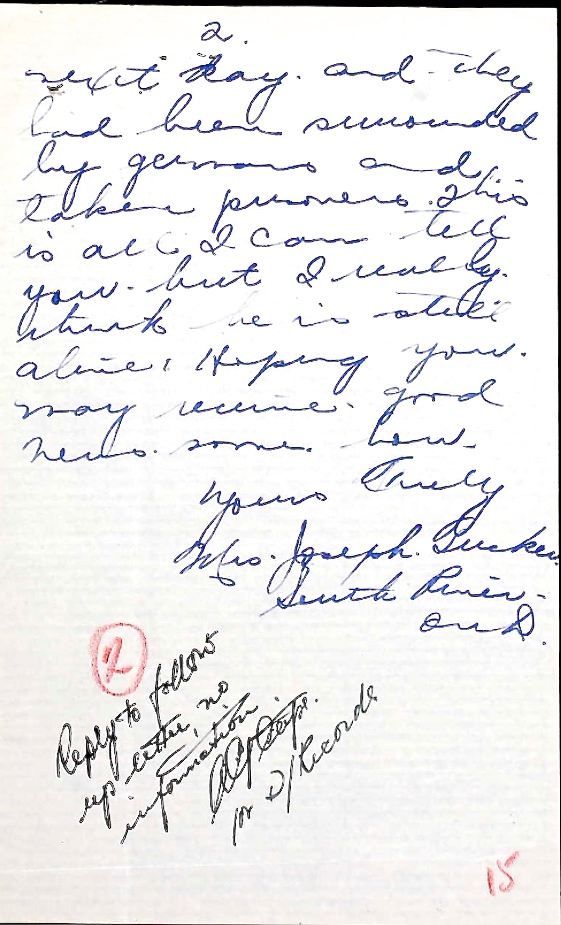 2.
next day. and they
had been surrounded
by germans and
taken prisoners. This
is all I can tell
you. but I really.
think he is still
alive. Hoping you.
may receive. good
news. some. how.
Yours Truly
Mrs. Joseph.
South River.
Ont.
2
Reply to follow
up letter, no
information.
for D/Records
15